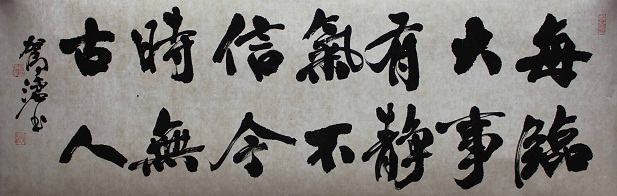 每臨
大事
有靜
氣不
信今
時無
古人